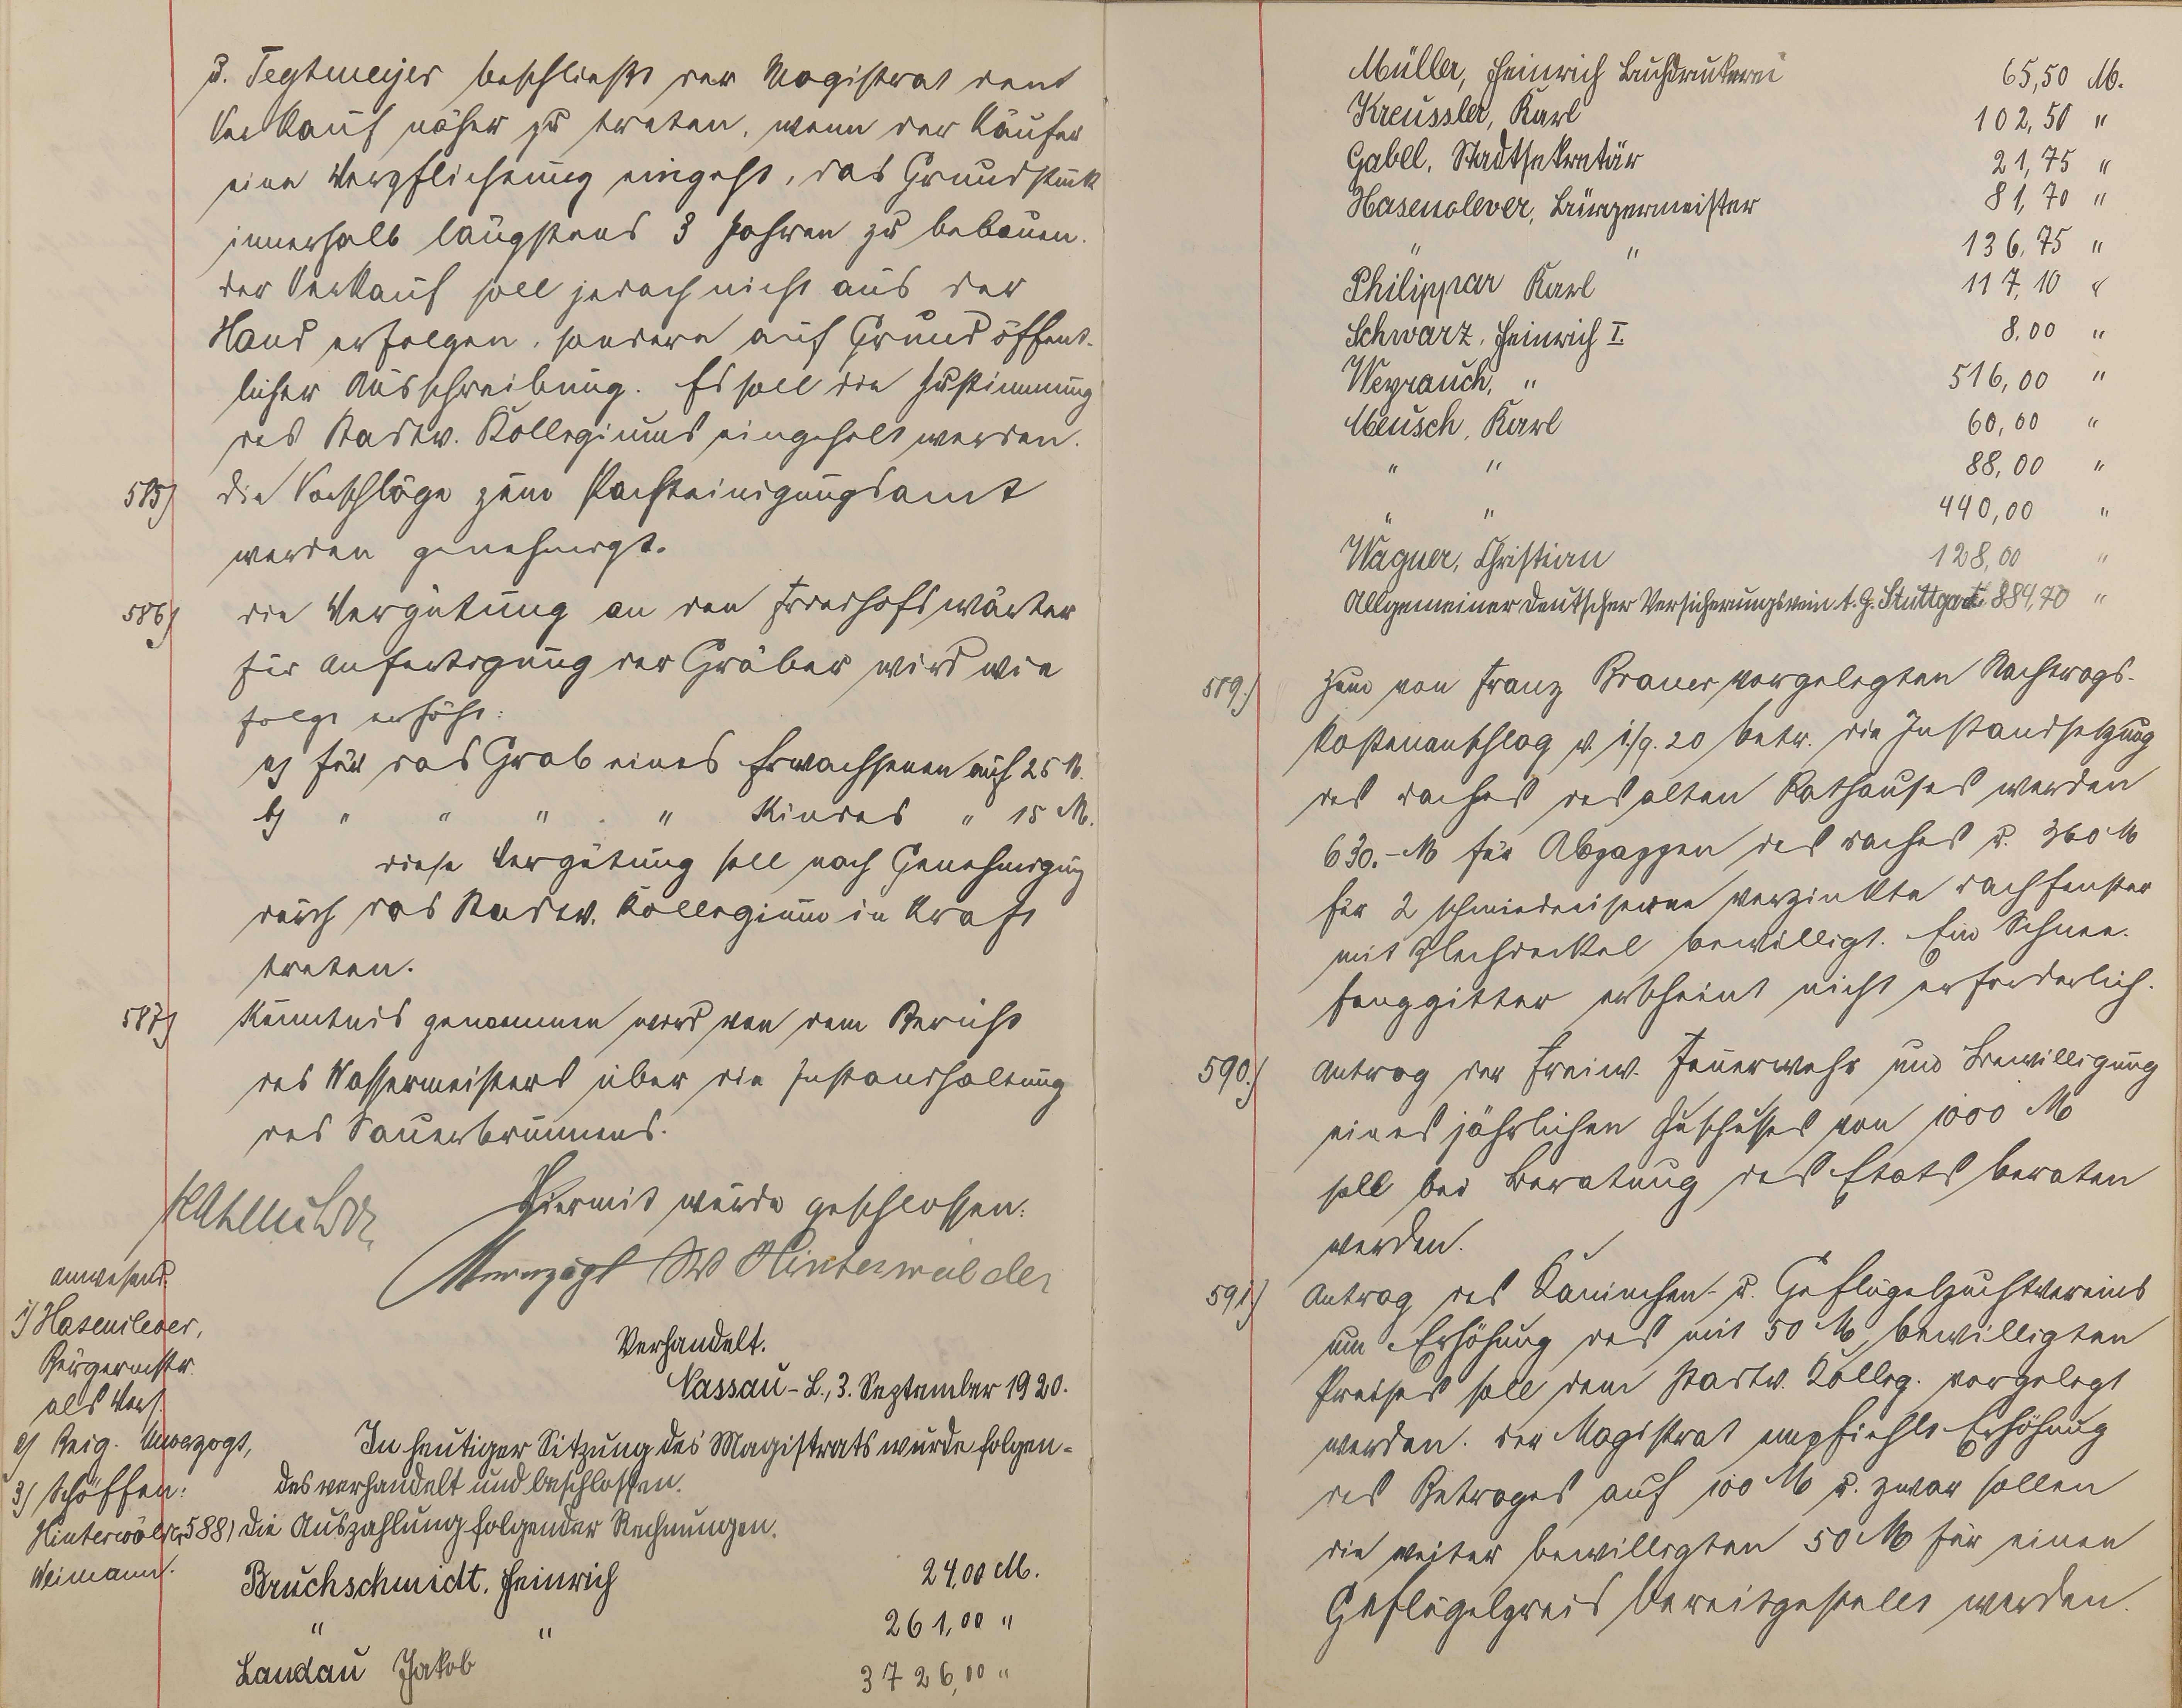 u. Tegtmeyer beschließt der Magistrat dem
Verkauf näher zu treten, wenn der Käufer
eine Verpflichtung eingeht, das Grundstück
innerhalb längstens 3 Jahren zu bebauen.
Der Verkauf soll jedoch nicht aus der
Hand erfolgen, sondern auf Grund öffent-
licher Ausschreibung. Es soll die Zustimmung
des Stadtv. Kollegiums eingeholt werden.
585) Die Vorschläge zum Pachteinigungsamt
werden genehmigt.
586) Die Vergütung an den Friedhofswärter
für Anfertigung der Gräber wird wie
folgt erhöht:
a) für das Grab eines Erwachsenen auf 25 M.
b) " " " " Kindes " 15 M.
Diese Vergütung soll nach Genehmigung
durch das Stadtv. Kollegium in Kraft
treten.
587) Kenntnis genommen wird von dem Bericht
des Wassermeisters über die Instandhaltung
des Sauerbrunnens.
Hiermit wurde geschlossen.
Unverzagt Hinterwälder
Anwesend.
1) Hasenclever,
Bürgermstr.
als Vors.
2) Beig. Unverzagt,
3) Schöffen:
Hinterwälder
Weimann.
Verhandelt.
Nassau-L., 3. September 1920.
In heutiger Sitzung des Magistrats wurde folgen-
des verhandelt und beschlossen.
588) Die Auszahlung folgender Rechnungen.
Bruchschmidt, Heinrich 24,00 M.
" " 261,00 "
Landau Jakob 3726,00 "
Müller, Heinrich Buchdruckerei 65,50 M.
Kreussler, Karl 102,50 "
Gabel, Stadtsekretär 21,75 "
Hasenclever, Bürgermeister 81,70 "
" " 136,75 "
Philippar Karl 117,10 "
Schwarz, Heinrich I. 8,00 "
Weyrauch, " 516,00 "
Meusch, Karl 60,00 "
" " 88,00 "
" " 440,00 "
Wagner, Christian 128,00 "
Allgemeiner Deutscher Versicherungsverein A. G. Stuttgart 884,70 "
589.) Zum von Franz Brauer vorgelegten Nachtrags-
kostenanschlag v. 1./9. 20 betr. die Instandsetzung
des Daches des alten Rathauses werden
630.- M für Abgaggen des Daches u. 360 M
für 2 schmiedeeiserne verzinkte Dachfenster
mit Blechdeckel bewilligt. Ein Schnee-
fanggitter erscheint nicht erforderlich.
590.) Antrag der Freiw. Feuerwehr um Bewilligung
eines jährlichen Zuschusses von 1000 M
soll bei Beratung des Etats beraten
werden.
591.) Antrag des Kaninchen- u. Geflügelzuchtvereins
um Erhöhung des mit 50 M bewilligten
Preises soll dem Stadtv. Kolleg. vorgelegt
werden. Der Magistrat empfiehlt Erhöhung
des Betrages auf 100 M u. zwar sollen
die weiter bewilligten 50 M für einen
Geflügelpreis bereitgestellt werden.